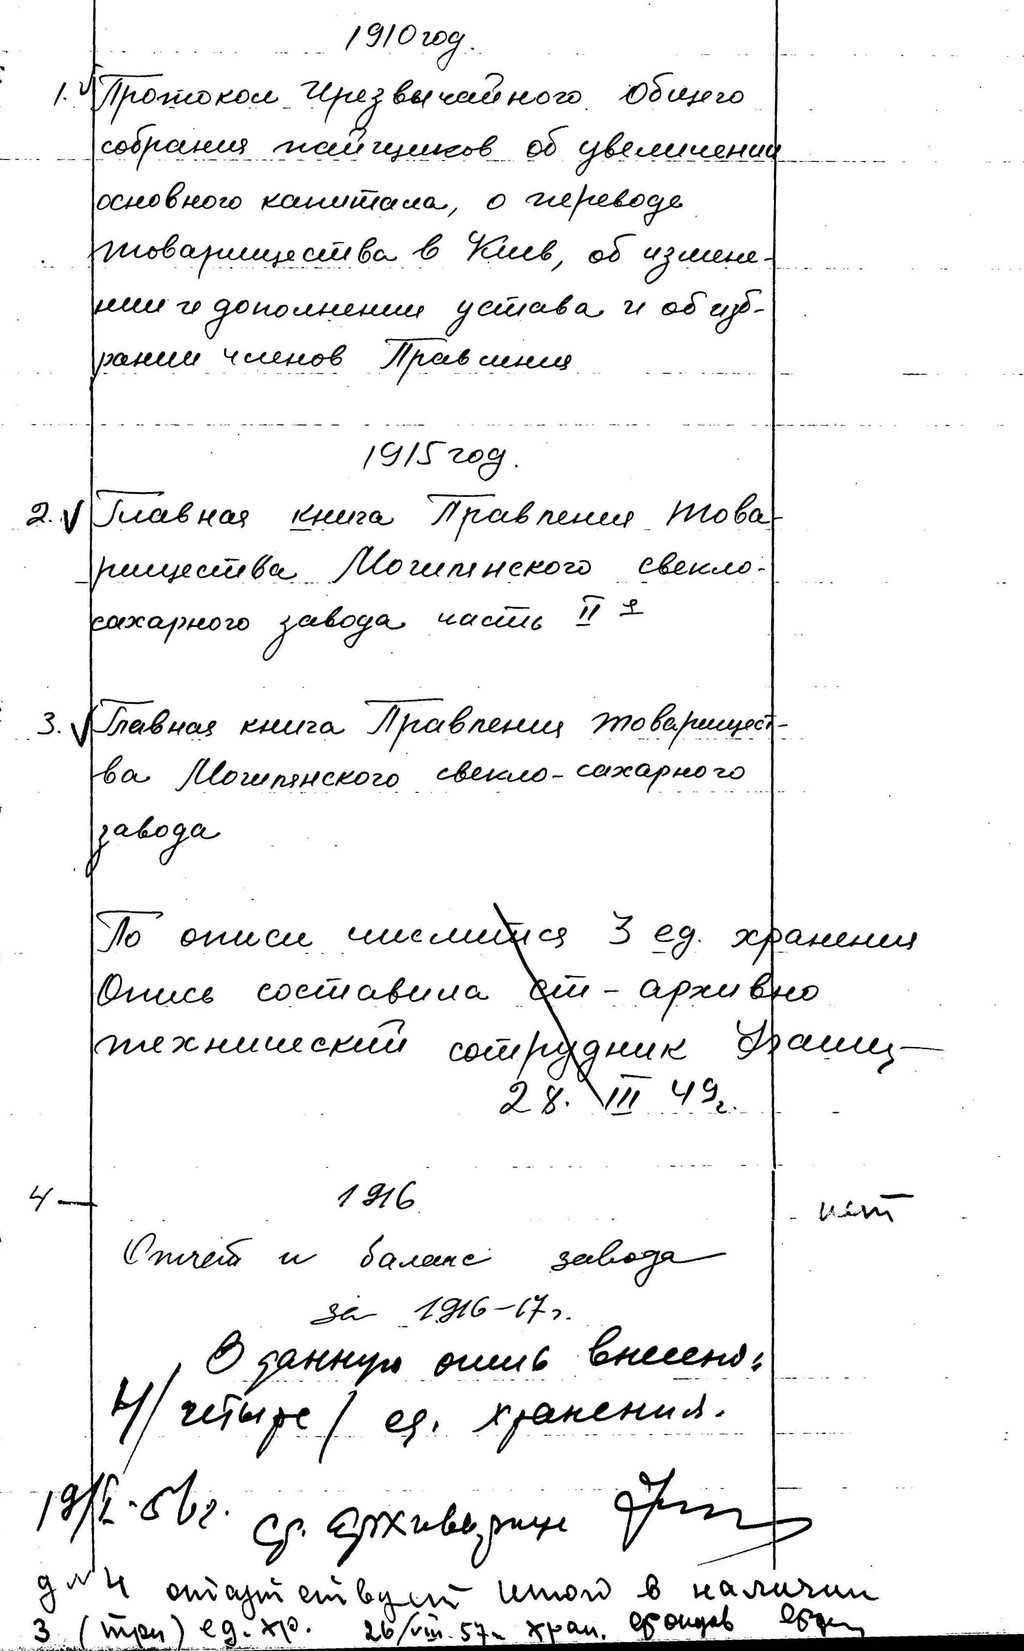 1910 год.
1. Протокол Чрезвычайного Общего
собрания пайщиков об увеличении
основного капитала, о переводе
товарищества в Киев, об измене-
нии и дополнении устава и об из-
рании членов Правления
1915 год.
2. Главная книга Правления това-
рищества Могилянского свекло-
сахарного завода часть II я
3. Главная книга Правления товарищест-
ва Могилянского свекло-сахарного
завода
По описи числится 3 ед. хранения
Опись составила ст-архивно
технический сотрудник
28. III 49 г.
4 — 1916 нет
Отчет и баланс завода
за 1916-17 г.
В данную опись внесено:
4/ четыре / ед. хранения.
56 г. ст.
д № 4 отсутствует итого в наличии
3 (три) ед. хр. 26/VIII.57 г. хран. фондов